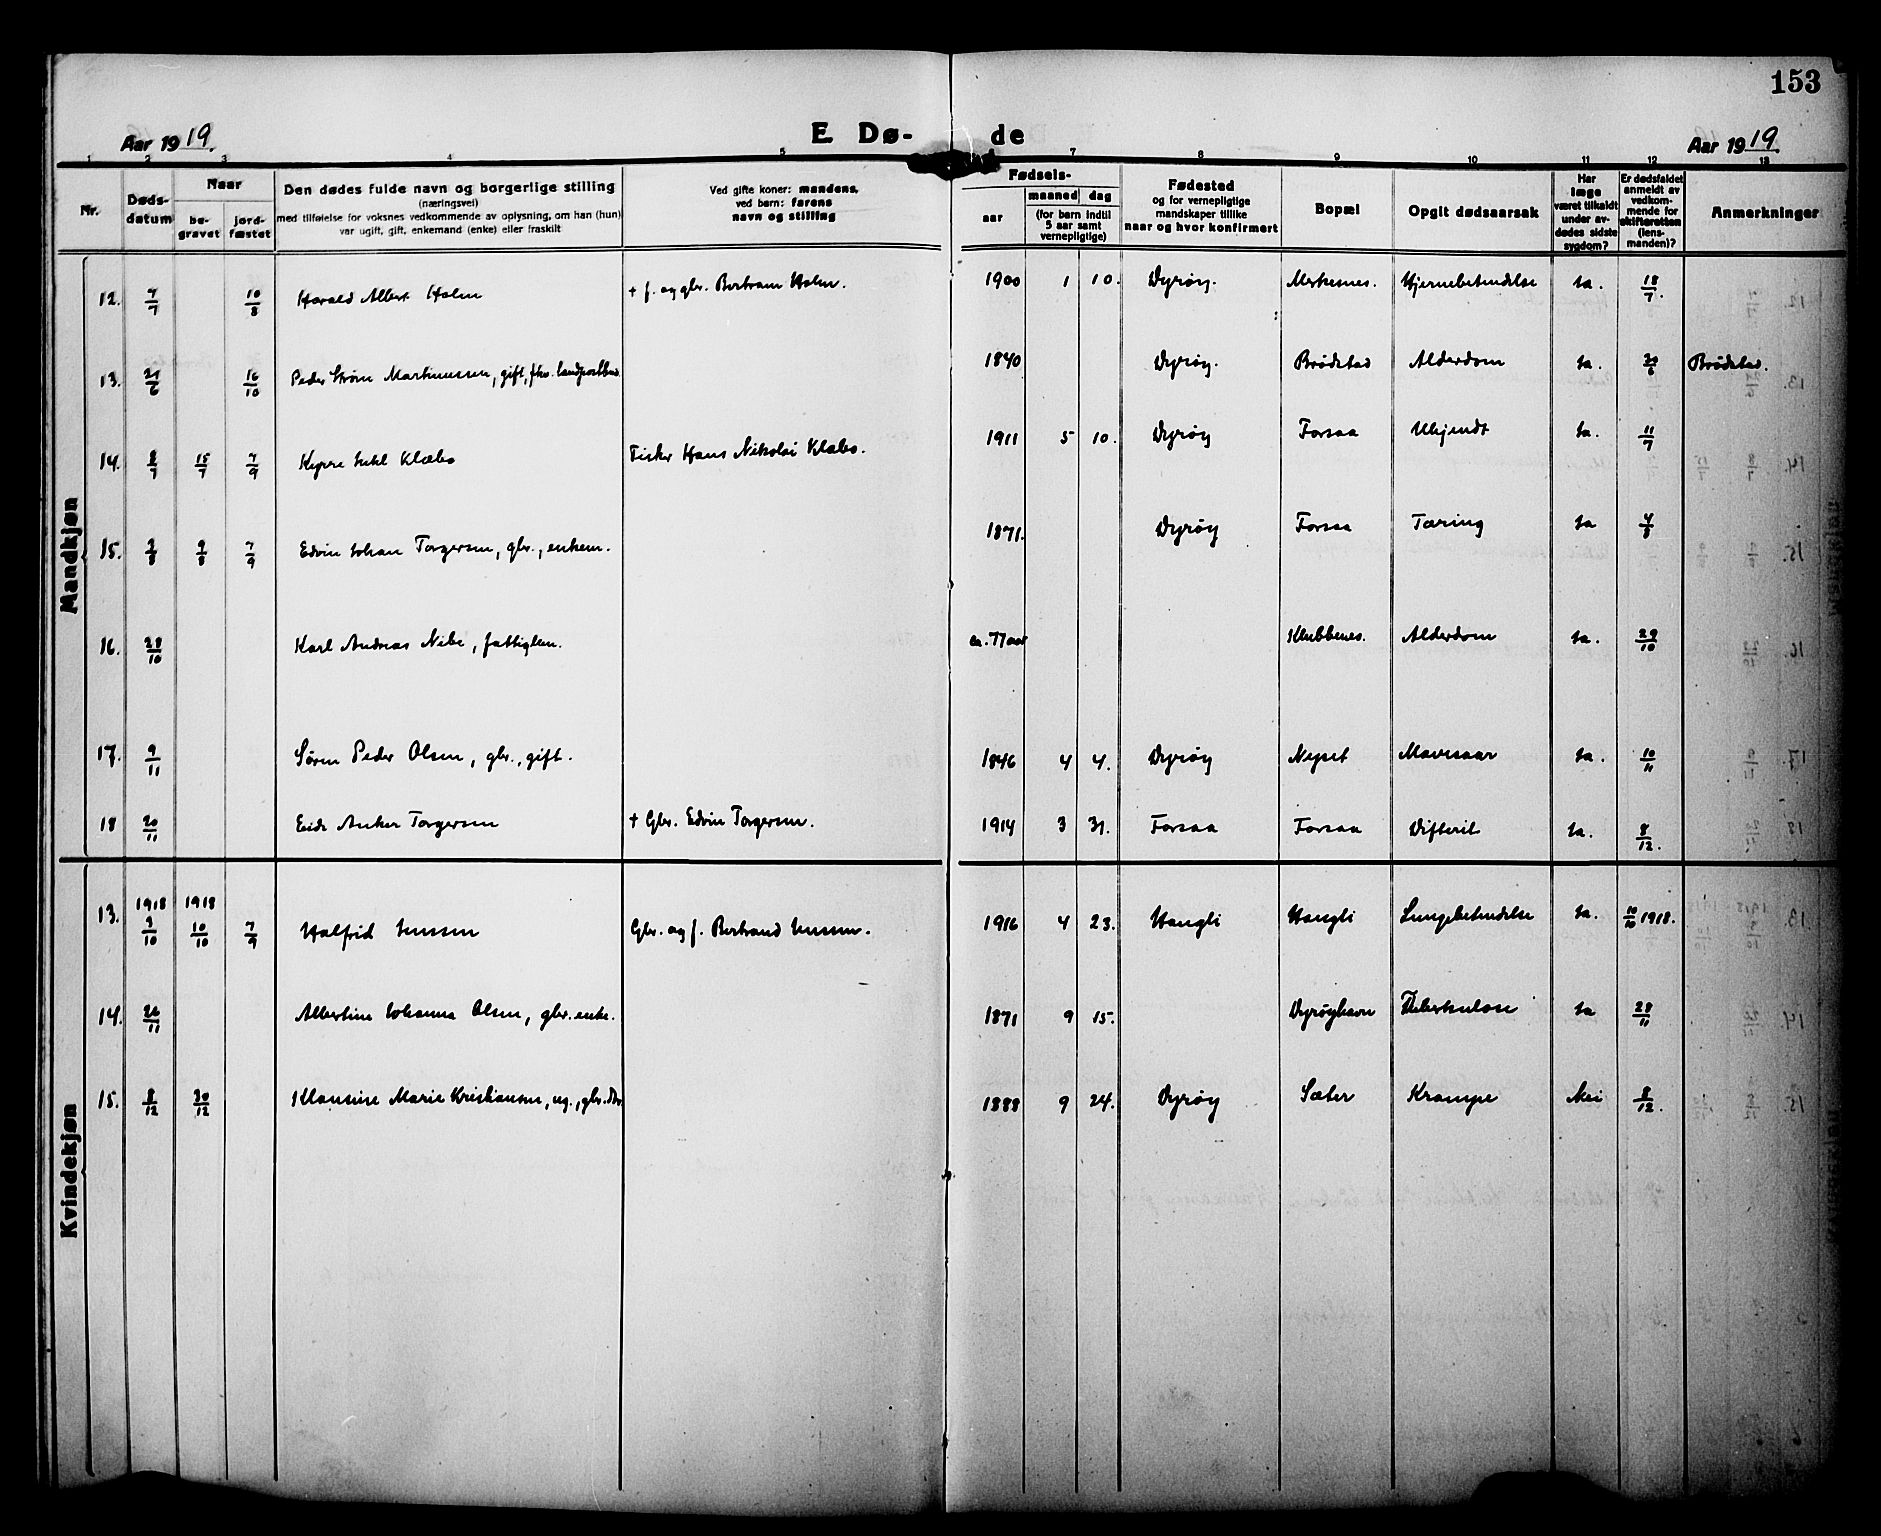 153
Aar 1919.
E. Dø-
de
Aar 1919.
1 2 3 4 5 7 8 9 10 11 12 13
Nr.
Døds-
datum
Naar
be-
gravet
jord-
fæstet
Den dødes fulde navn og borgerlige stilling
(næringsvei)
med tilføielse for voksnes vedkommende av oplysning, om han (hun)
var ugift, gift, enkemand (enke) eller fraskilt
Ved gifte koner: mandens,
ved børn: farens
navn og stilling
Fødsels-
aar
maaned
dag
(for børn indtil
5 aar samt
vernepligtige)
Fødested
og for vernepligtige
mandskaper tillike
naar og hvor konfirmert
Bopæl
Opgit dødsaarsak
Har
læge
været tilkaldt
under av-
dødes sidste
sygdom?
Er dødsfaldet
anmeldt av
vedkom-
mende for
skifteretten
(lens-
manden)?
Anmerkninger
Mandkjøn
12. 7/7 10/8 Harald Albert Holm + f. og gbr. Bertram Holm. 1900 1 10. Dyrøy. Merkesnes. Hjernebetændelse Ja. 18/7.
13. 21/6 16/10 Peder Strøm Martinussen, gift, fhv. 1840 Dyrøy. Brødstad Alderdom Ja. 30/6 Brødstad.
14. 8/7 15/7 7/9 Klæbo Fisker Hans Nikolai Klæbo. 1911 5 10. Dyrøy Forsaa Ukjendt Ja. 11/7
15. 3/8 9/8 7/9 Edvin Johan Torgersen, gbr., enkem. 1871. Dyrøy Forsaa Tæring Ja 4/8
16. 28/10 Karl Andreas Nibe, fattiglem. ca. 77 aar Klubbenes. Alderdom Ja. 29/10
17. 9/11 Søren Peder Olsen, gbr., gift. 1846 4 4. Dyrøy Nyset Mavesaar Ja. 10/11
18 20/11 Anker Torgersen + Gbr. Edvin Torgersen. 1914 3 31. Forsaa Forsaa Difterit Ja. 8/12.
Kvindekjøn
13. 1918 3/10 1918 10/10 7/9 Halfrid Jenssen Gbr. og f. Bertrand Jenssen. 1916 4 23. Hangli Hangli Lungebetændelse Ja. 10/10 1918.
14. 26/11 Albertine Johanna Olsen, gbr. enke. 1871 9 15. Dyrøyhavn Tuberkulose Ja 28/11
15. 8/12 30/12 Klausine Marie Kristiansen, ug., gbr. dtr. 1888 9 24. Dyrøy Sæter Krampe Nei 8/12.